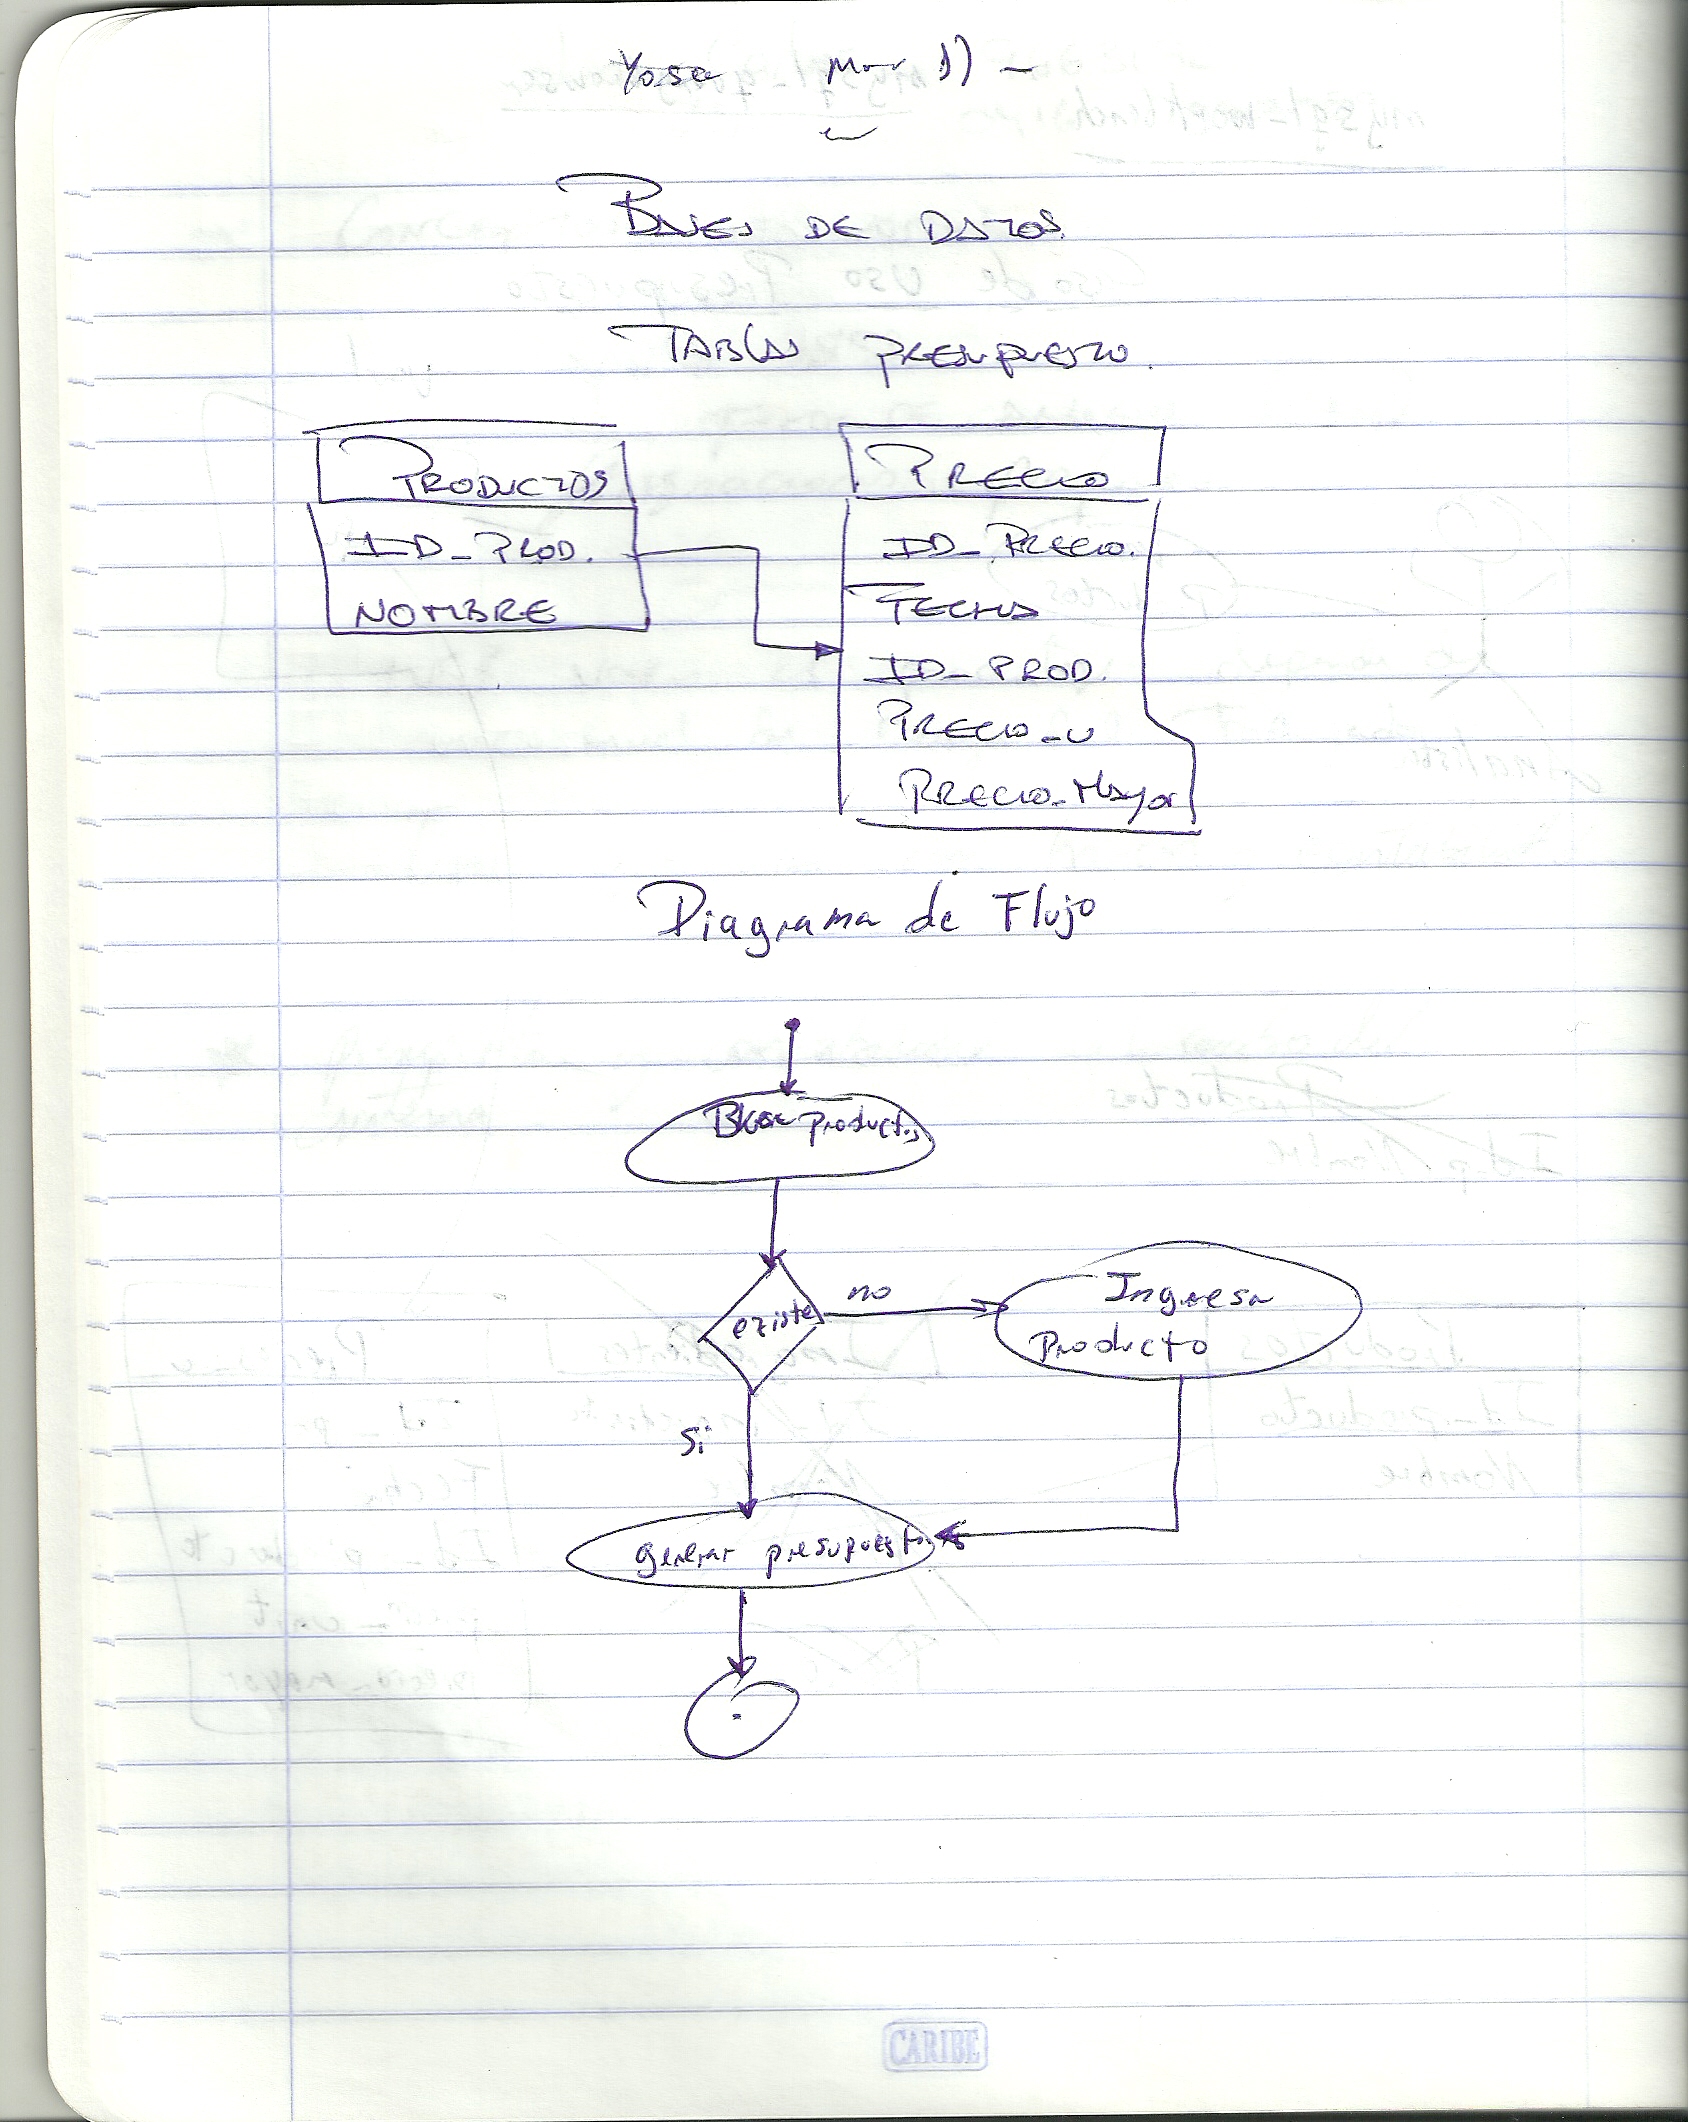 Yosa
BASES DE DATOS.
TABLAS PRESUPUESTO.
PRODUCTOS
ID_PROD.
NOMBRE
PRECIO
ID_PRECIO.
FECHA
ID_PROD.
PRECIO_U
PRECIO_Mayor
Diagrama de Flujo
productos
existe
no
Ingresa
Producto
Si
generar presupuesto
CARIBE